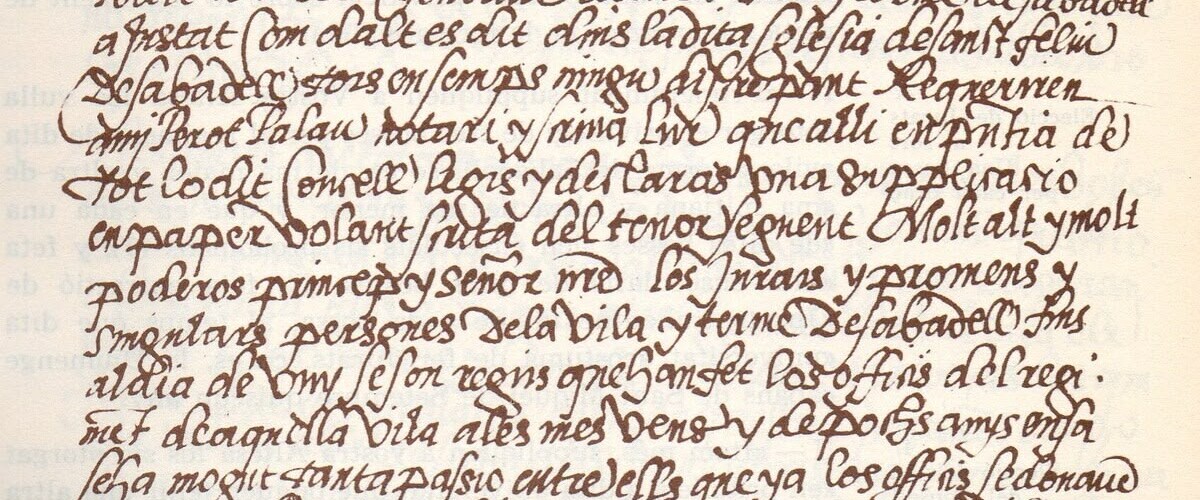 ajustat com dalt es dit dins la dita sglesia de sanct feliu
de sabadell tots ensemps ningu discrepant Requeriren
a mi perot palau notari y scriva lur que alli en pntia de
tot lo dit consell legis y declaras una supplicasio
en paper volant scrita del tenor seguent Molt alt y molt
poderos princep y señor nre los Jurats y promens y
singulars persones de la vila y terme de sabadell fins
al dia de vuy se son regits que han fet los offiis del regi
met de aquella vila a les mes veus y de pochs anys ensa
se ha mogut tanta passio entre ells que ya los offiis se donave